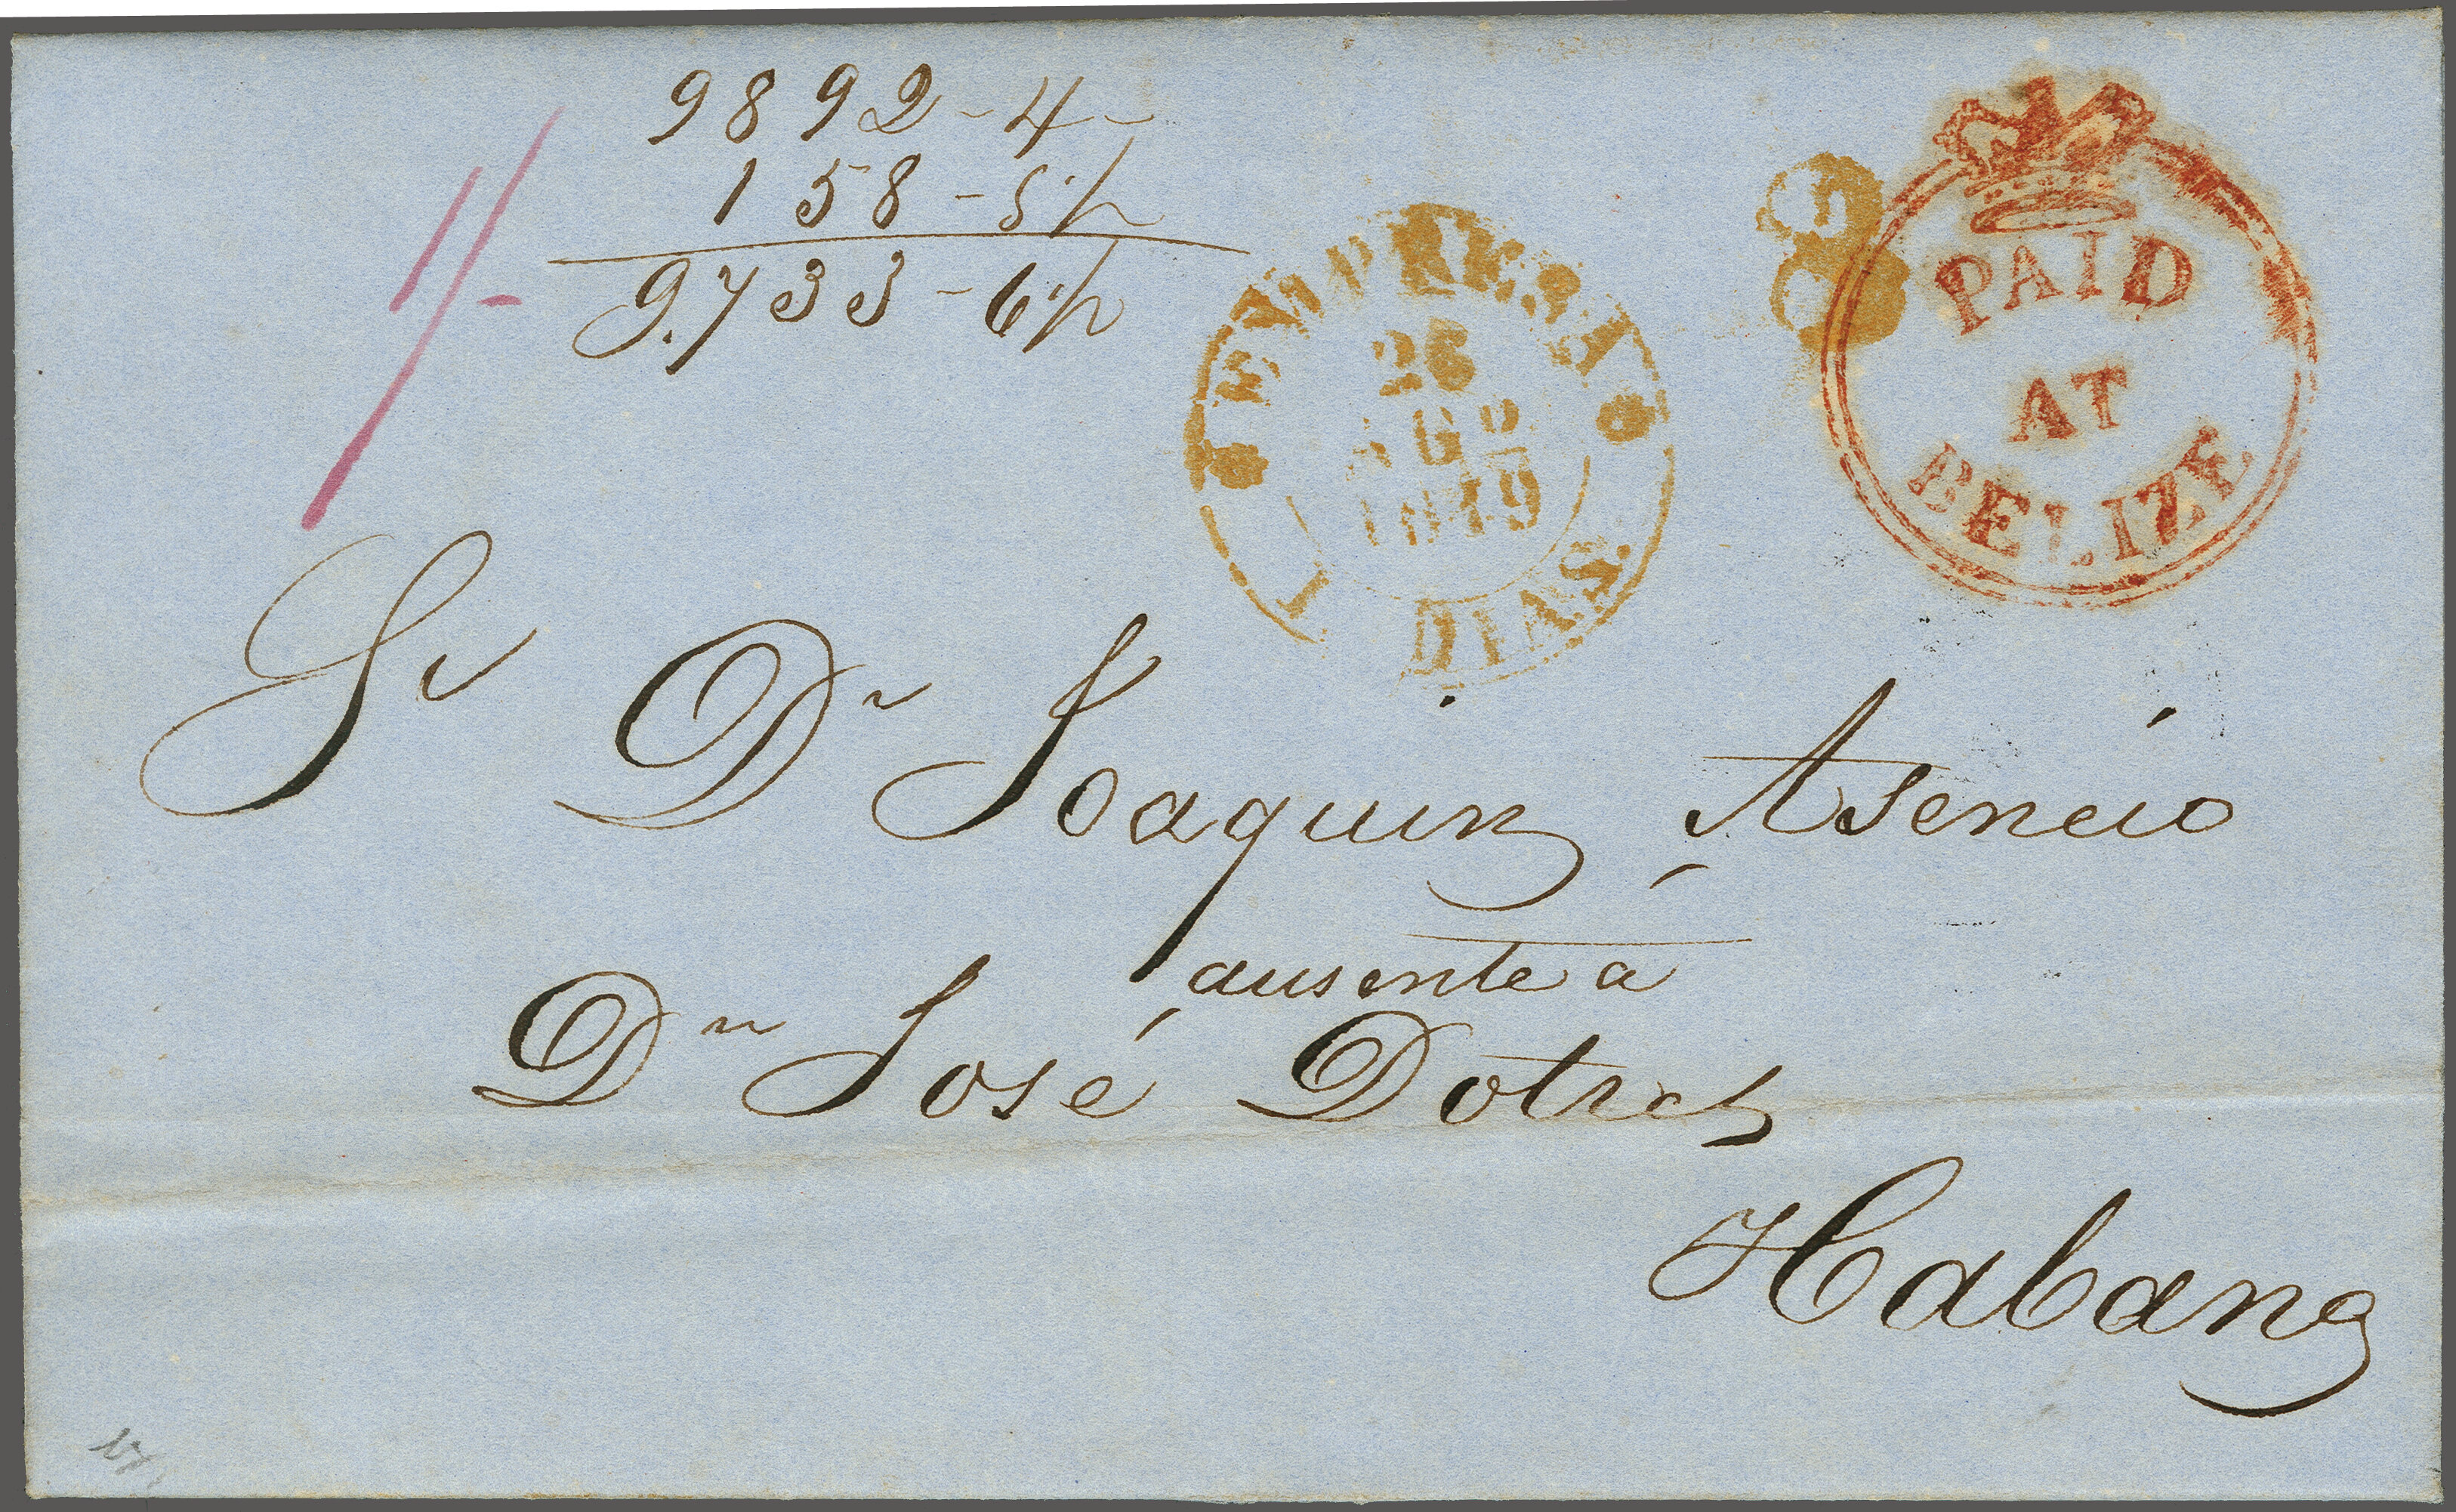 9892-4-
158-5½
9.733-6½
1/-
EMPRESA
26
AGO
1849
I. DIAS.
PAID
AT
BELIZE
Sr Dn Joaquin Asencio
ausente á
Dn José Dotres
Habana